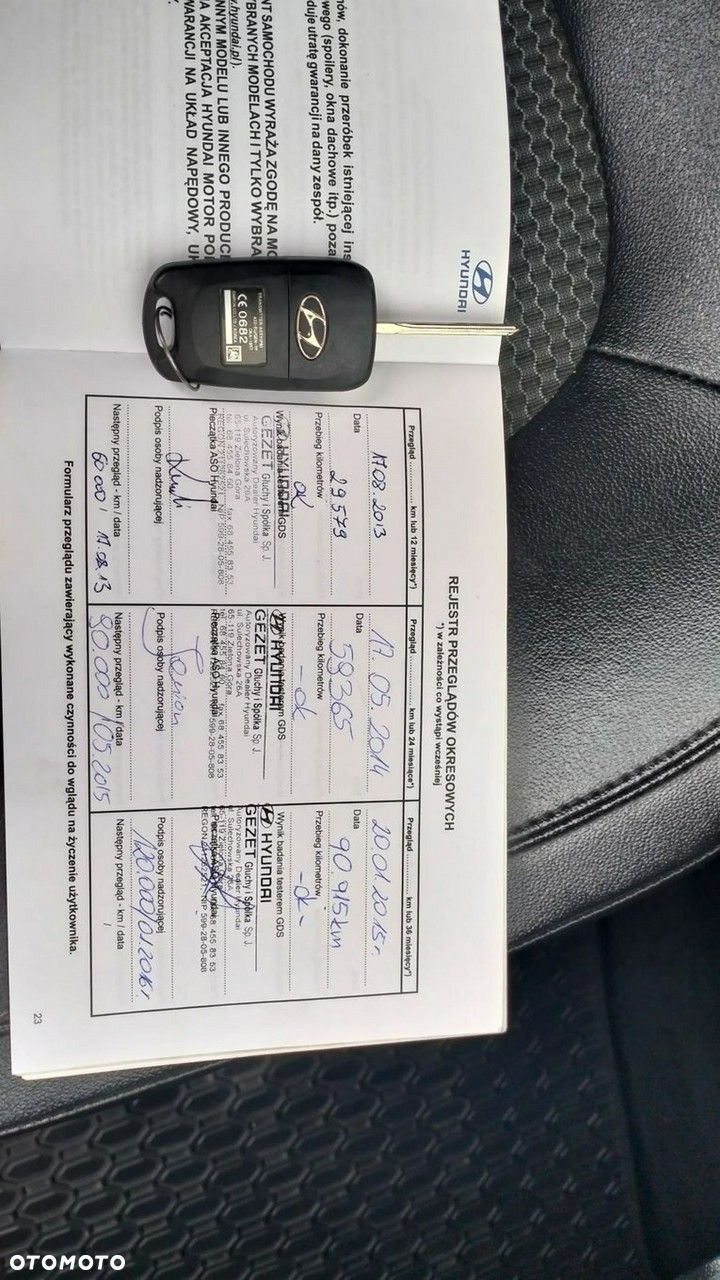 HYUNDAI
nów, dokonanie przeróbek istniejącej ins
wego (spoilery, okna dachowe itp.) poza
duje utratę gwarancji na dany zespół.
NT SAMOCHODU WYRAŻA ZGODĘ NA MO
YBRANYCH MODELACH I TYLKO WYBRA
NNYM MODELU LUB INNEGO PRODUC
NA AKCEPTACJA HYUNDAI MOTOR POL
WARANCJI NA UKŁAD NAPĘDOWY, UK
w.hyundai.pl).
CE 0682
REJESTR PRZEGLĄDÓW OKRESOWYCH
*) w zależności co wystąpi wcześniej
Przegląd .............. km lub 12 miesięcy*)
17.08.2013
Data
29,579
Przebieg kilometrów
ok
Wynik badania testerem GDS
HYUNDAI
GEZET Głuchy i Spółka Sp. J.
Autoryzowany Dealer Hyundai
ul. Sulechowska 26A
65-119 Zielona Góra
tel. 68 455 84 60 fax 68 455 83 53
NIP 599-28-05-808
Pieczątka ASO Hyundai
Podpis osoby nadzorującej
Następny przegląd - km / data
60 000 / 17.08.13
Przegląd .............. km lub 24 miesiące*)
17.05.2014
Data
59365
Przebieg kilometrów
- ok
Wynik badania testerem GDS
HYUNDAI
GEZET Głuchy i Spółka Sp. J.
Autoryzowany Dealer Hyundai
ul. Sulechowska 26A
65-119 Zielona Góra
fax 68 455 83 53
599-28-05-808
Pieczątka ASO Hyundai
Podpis osoby nadzorującej
Następny przegląd - km / data
90.000 / 05.2015
Przegląd .............. km lub 36 miesięcy*)
20.01.2015r.
Data
90.915km
Przebieg kilometrów
- ok -
Wynik badania testerem GDS
HYUNDAI
GEZET Głuchy i Spółka Sp. J.
Autoryzowany Dealer Hyundai
ul. Sulechowska 26A
65-119 Zielona
68 455 83 53
NIP 599-28-05-808
Podpis osoby nadzorującej
120.000/01.2016r.
Następny przegląd - km / data
/
Formularz przeglądu zawierający wykonane czynności do wglądu na życzenie użytkownika.
23
OTOMOTO